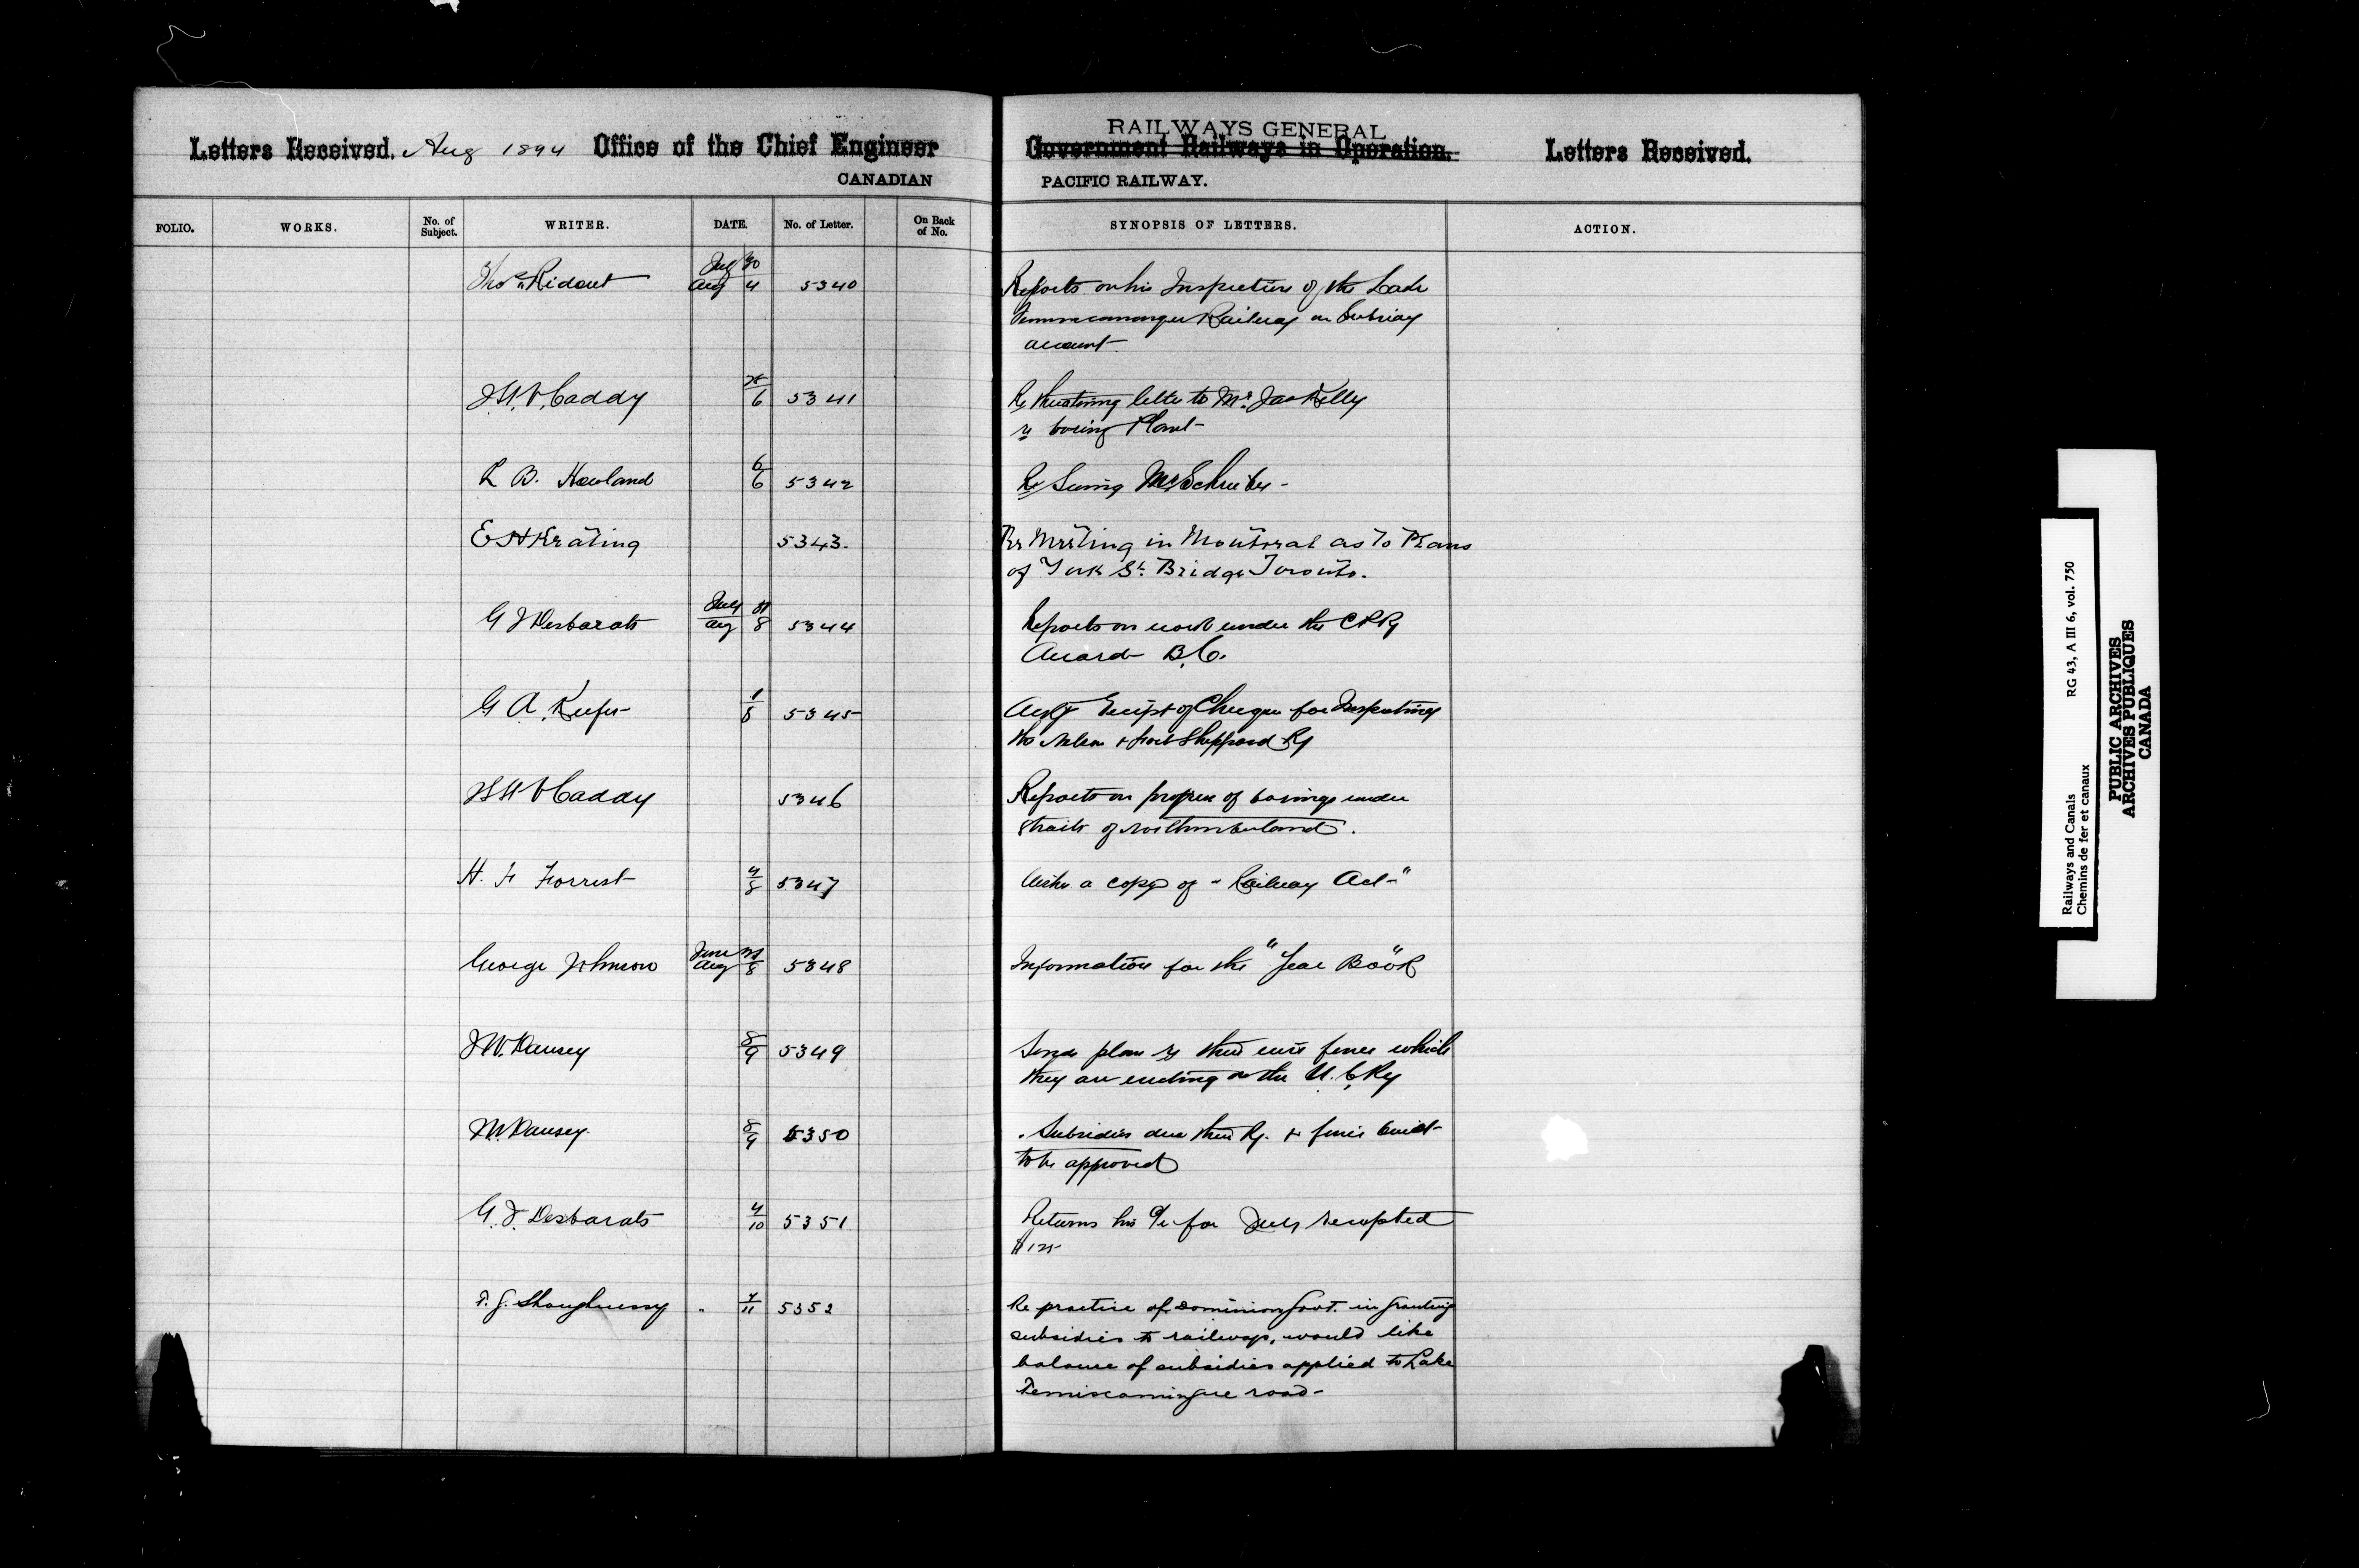 Letters Received. Aug 1894 Office of the Chief Engineer
CANADIAN
RAILWAYS GENERAL
Government Railways in Operation.
PACIFIC RAILWAY.
Letters Received.
FOLIO. WORKS. No. of Subject. WRITER. DATE. No. of Letter. On Back of No. SYNOPSIS OF LETTERS. ACTION.
July 30
Thos Ridout Aug 4 5340 Reports on his Inspection of the Lake
Railway on Subsidy
account
Caddy 6 5341 Re threatening letter to Mr. Jas Kelly
re boring Plant
6
R B. Howland 6 5342 Re Seeing Mr Schreiber -
E H Keating 5343. Re Meeting in Montreal as To Plans
of York St. Bridge Toronto.
July 31
G J Desbarats Aug 8 5344 Reports on work under the CPRy
Award B.C.
1
G A. Keefer 8 5345 receipt of Cheque for Inspecting
the Nelson & Fort Sheppard Ry
Caddy 5346 Reports on progress of borings under
Straits of Northumberland.
4
H. F Forrest 8 5347 Wishes a copy of "Railway Act"
June
George Johnson Aug 8 5348 Information for the "Year Book"
8
J W. Dansey 9 5349 Sends plan re their wire fence which
they are erecting on the Ry
8
Dansey. 9 5350 Subsidies due their Ry. & fence built
to be approved
4
G. J. Desbarats 10 5351 Returns his a/c for July receipted
$125
7
T. G. Shaughnessy " 11 5352 Re practice of Dominion Govt. in granting
subsidies to railways, would like
balance of subsidies applied to Lake
Temiscamingue road-
Railways and Canals RG 43, A III 6, vol. 750
Chemins de fer et canaux
PUBLIC ARCHIVES
ARCHIVES PUBLIQUES
CANADA